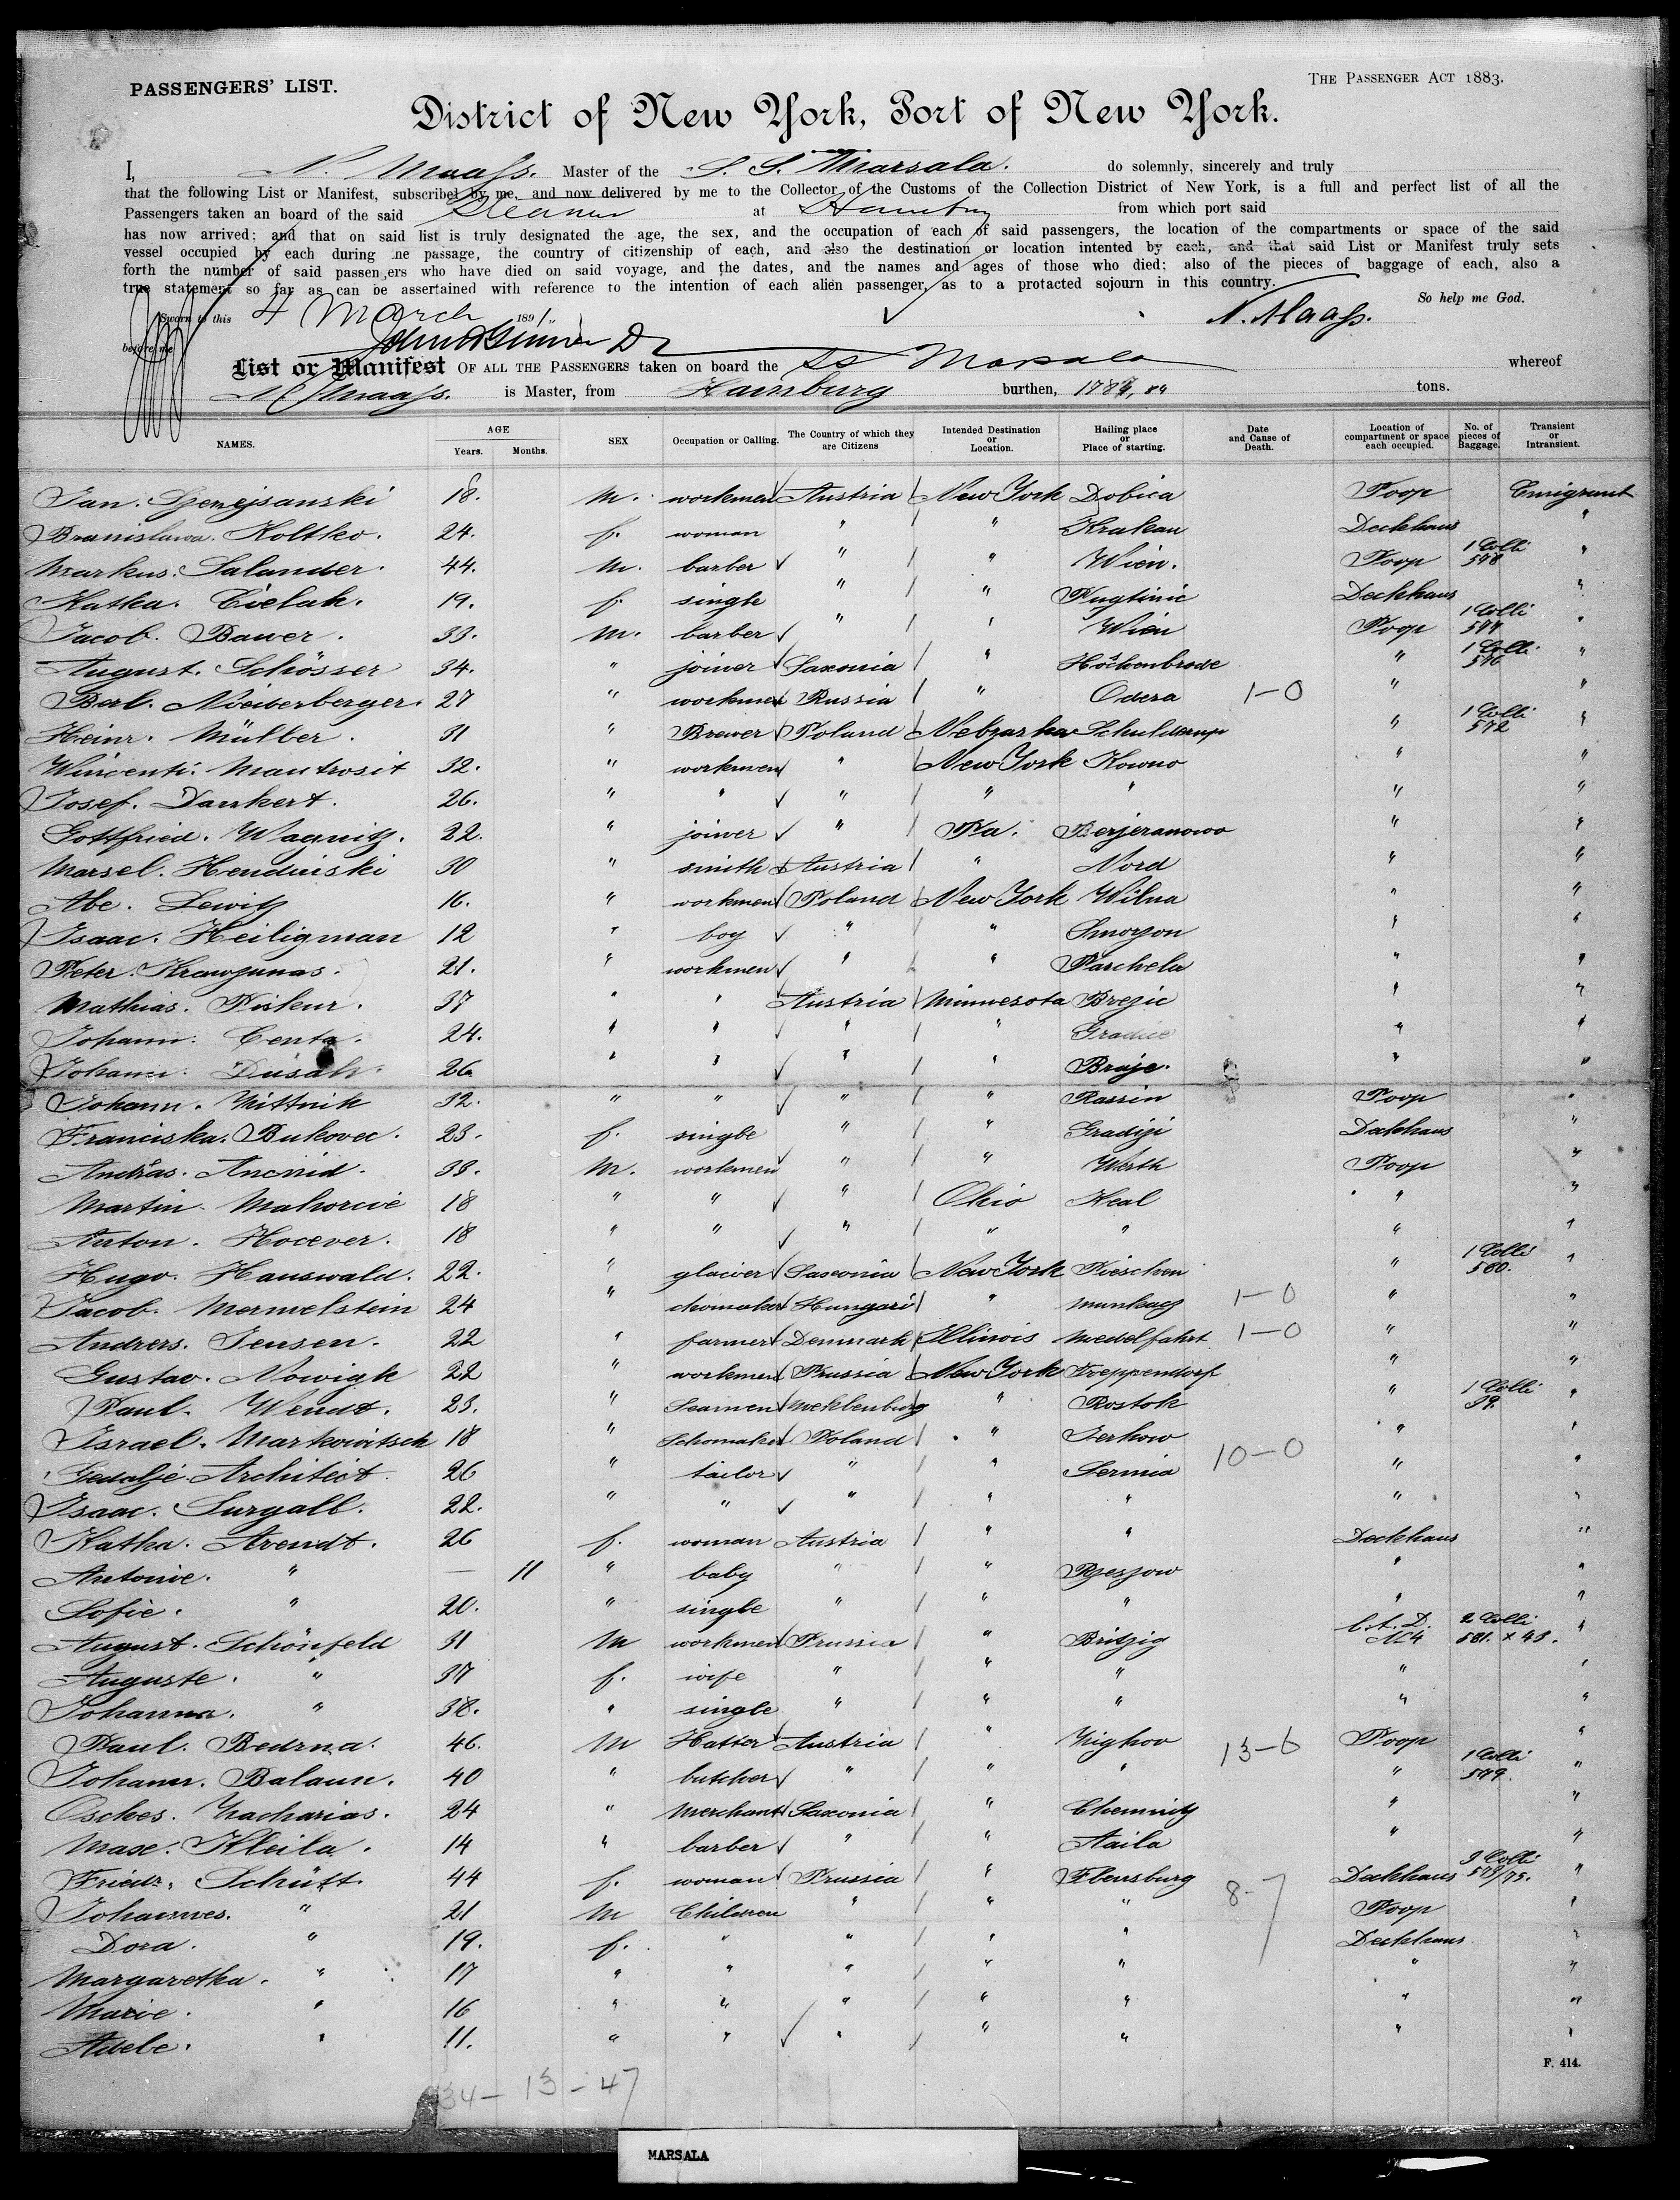 PASSENGERS' LIST.
THE PASSENGER ACT 1883.
District of New York, Port of New York.
I, N. Maass. Master of the S. S. Marsala. do solemnly, sincerely and truly
that the following List or Manifest, subscribel by me, and now delivered by me to the Collector of the Customs of the Collection District of New York, is a full and perfect list of all the
Passengers taken an board of the said Steamer at Hamburg from which port said
has now arrived; and that on said list is truly designated the age, the sex, and the occupation of each of said passengers, the location of the compartments or space of the said
vessel occupied by each during ne passage, the country of citizenship of each, and also the destination or location intented by each, and that said List or Manifest truly sets
forth the number of said passen ers who have died on said voyage, and the dates, and the names and ages of those who died; also of the pieces of baggage of each, also a
true statement so far as can be assertained with reference to the intention of each alien passenger, as to a protacted sojourn in this country.
So help me God.
Sworn to this 4 March 1891. N. Maass.
before me
List or Manifest OF ALL THE PASSENGERS taken on board the SS Marsala whereof
N Maass. is Master, from Hamburg burthen, tons.
NAMES. AGE Years. Months. SEX Occupation or Calling. The Country of which they are Citizens Intended Destination or Location. Hailing place or Place of starting. Date and Cause of Death. Location of compartment or space each occupied. No. of pieces of Baggage. Transient or Intransient.
Jan. 18. m. workmen Austria New York Dobica Poop Emigrant
Branislawa. Koltko. 24. f. woman " " Krakau Deckhaus "
Markus. Salander. 44. m. barber " " Wien. Poop 1 Colli 578 "
Katka. Cielak. 19. f. single " " Deckhaus "
Jacob. Bawer. 33. m. barber " " Wien Poop 1 Colli 577 "
August. Schösser 34. " joiner Saxonia " Höckenbrode " 1 Colli 576 "
Berl. 27 " workmen Russia " Odesa 1-0 " "
Heinr. Mülber. 31 " Brewer Poland " 1 Colli 572 "
Wincenti. Mautrosit 32. " workmen " New York Kowno " "
Josef. Dankert. 26. " " " " " " "
Gottfried. Wagnitz. 22. " joiner " Pa. Berjeranowo " "
Marsel. Hendinski 30 " smith Austria " Nord " "
Abe. Lewitz 16. " workmen Poland New York Wilna " "
Isaac. Heiligman 12 " boy " " Smorgon " "
Peter. Krawjunas. 21. " workmen " " Parchela " "
Mathias. Piskur. 37 " " Austria Minnesota Brezic " "
Johann. Centa. 24. " " " " Gradice " "
Johann. Dusah. 26 " " " " Braje. " "
Johann. Mittnik 32. " " " " Rassin Poop "
Franciska. Bukovec. 23. f. single " " Gradizi Deckhaus "
Andras. 33. m. workmen " " Werth Poop "
Martin. Mahorcic 18 " " " Ohio Keal " "
Anton. Hocever. 18 " " " " " " "
Hugo. Hauswald. 22. " glacier Saxonia New York Pieschen " 1 Colli 580. "
Jacob. Mermelstein 24 " chomaker Hungari " Munkacz 1-0 " "
Andrers. Jensen. 22 " farmer Denmark Illinois Medelfahrt 1-0 " "
Gustav. Nowigk 22 " workmen Prussia New York Treppendorf " "
Paul. Wendt. 23. " Seamen Meklenburg " Rostok " 1 Colli 39. "
Israel. Markowitsch 18 " Schomaker Poland " Serkow " "
Gedalje. Architect. 26 " tailor " " Sermia 10-0 " "
Isaac. Surgall. 22. " " " " " " "
Katha. Arendt. 26 f. woman Austria " " Deckhaus "
Antonie. " — 11 " baby " " Rzeszow " "
Sofie. " 20. " single " " " " "
August. Schönfeld 31 m workmen Prussia " Britzig No 4 2 Colli 581. + 43. "
Auguste. " 37 f. wife " " " " "
Johanna. " 38. " single " " " " "
Paul. Bedrna. 46. m Hatter Austria " Zighov 13-6 Poop "
Johann. Balaun. 40 " butcher " " " " 1 Colli 579. "
Osches. Zacharias. 24 " Merchant Saxonia " Chemnitz " "
Max. Kleila. 14 " barber " " Taila " "
Friedr. Schütt. 44 f. woman Prussia " Flensburg Deckhaus 3 Colli 573/75. "
Johannes. " 21 m Children " " " 8-7 Poop "
Dora. " 19. f. " " " " Deckhaus "
Margaretha. " 17 " " " " " " "
Marie. " 16 " " " " " " "
Adele. " 11. " " " " " " "
F. 414.
34- 13 - 47
MARSALA